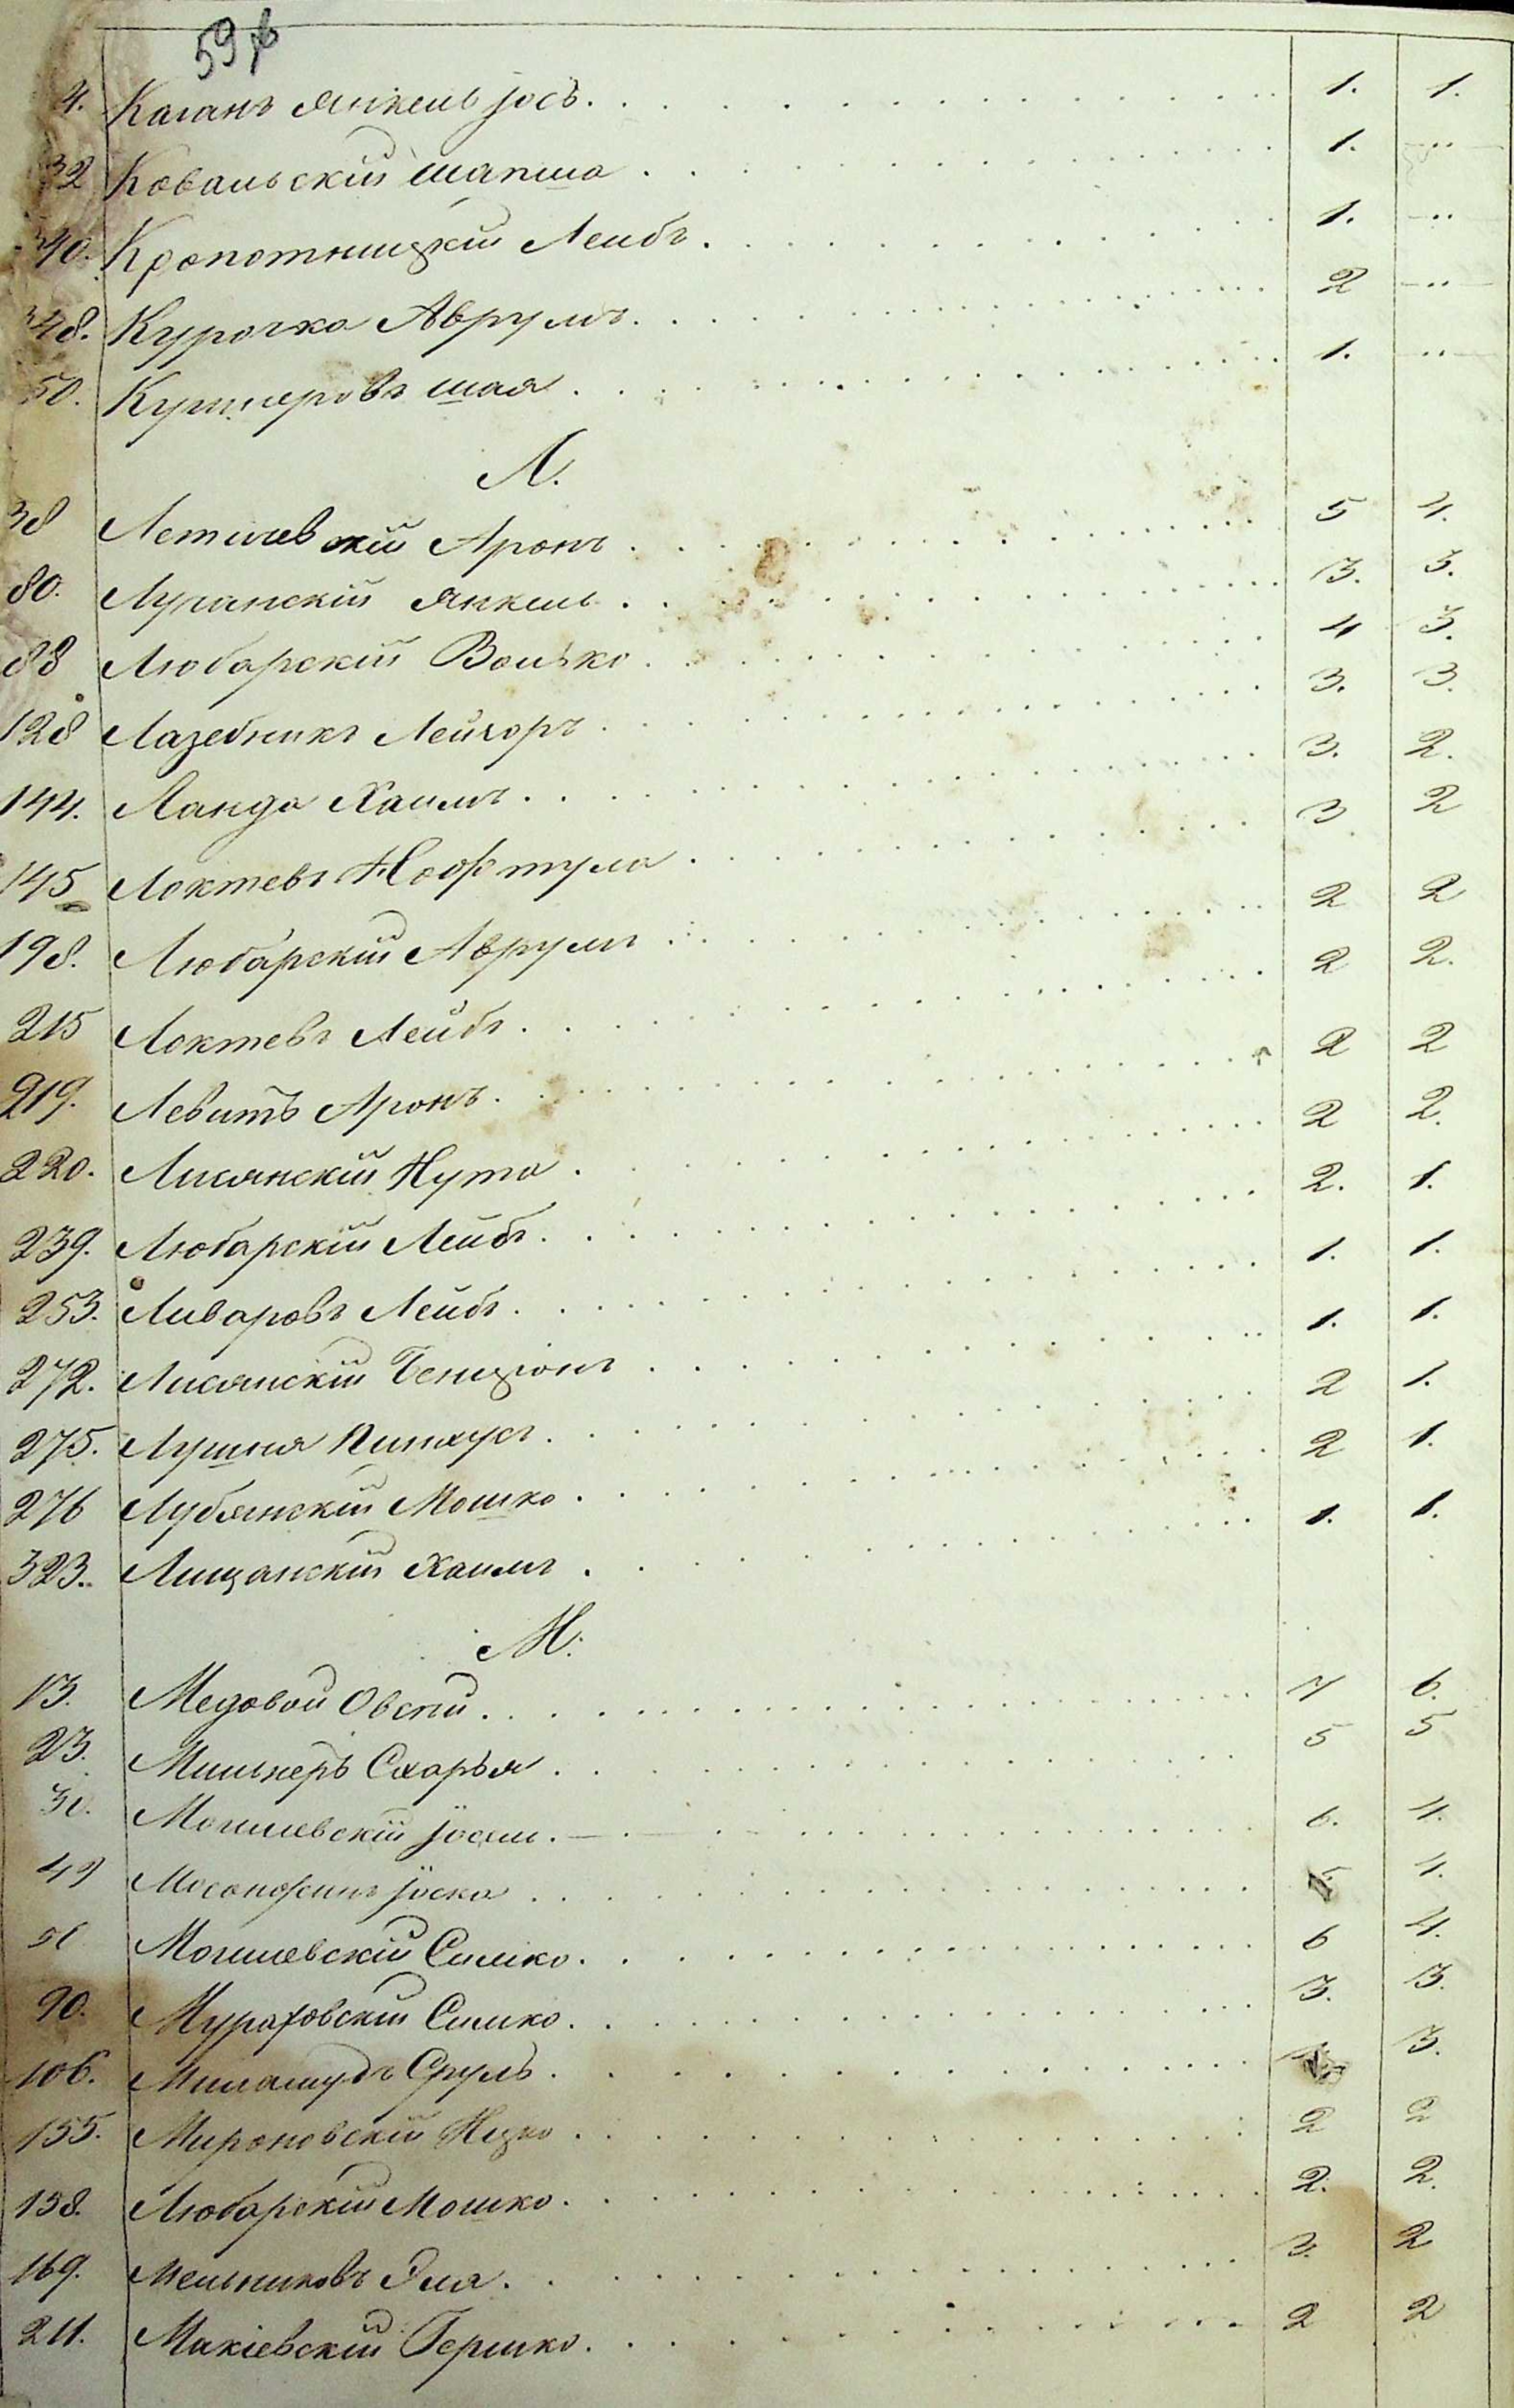 59
4. Каганъ Янкель Јосъ. 1. 1.
32 Ковальскій Шапша 1. -"-
340. Кропотницкій Лейбъ. 1. -"-
348. Курочка Аврумъ. 2 -"-
50. Кушнеровъ Шая 1. -"-
Л.
38 Летичевскій Аронъ 5 4.
80. Луганскій Янкель 3. 3.
88 Любарскій Волько 4 3.
128 Лазебникъ Лейзоръ 3. 3.
144. Ланда Хаимъ 3. 2.
145 Локтевъ Нафтула 3 2
198. Любарскій Аврумъ 2 2
215 Локтевъ Лейбъ 2 2.
219. Левитъ Аронъ 2 2
220. Лисянскій Нута 2 2.
239. Любарскій Лейбъ 2. 1.
253. Ливаровъ Лейбъ 1. 1.
272. Лисянскій Бенціонъ 1. 1.
275. Лушня Пинхусъ 2 1.
276 Лубянскій Мошко 2 1.
323. Лищанскій Хаимъ 1. 1.
М.
13. Медовой Овсей 7 6.
23. Мильнеръ Схарья 5 5
Могилевскій 6. 4.
49 Јоска 4.
Могилевскій Симко 6 4.
90. Мурафовскій Симко 3. 3.
106. Срулъ 3.
155. Мироновскій Ицко 2 2
158. Любарскій Мошко 2. 2.
169. Мельниковъ Эля 3. 2
211. Макіевскій Гершко 2 2